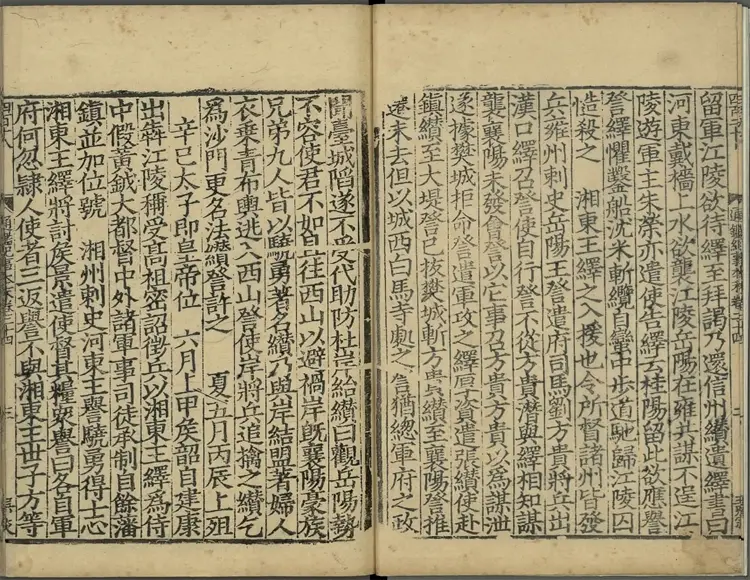 留軍江陵欲待繹至拜謁乃還信州纘遺繹書曰
河東戴檣上水欲襲江陵岳陽在雍共謀不逞江
陵遊軍主朱榮亦遣使告繹云桂陽留此欲應譽
詧繹懼鑿船沈米斬纜自蠻中步道馳歸江陵囚
慥殺之　湘東王繹之入援也令所督諸州皆發
兵雍州刺史岳陽王詧遣府司馬劉方貴將兵出
漢口繹召詧使自行詧不從方貴潛與繹相知謀
襲襄陽未發會詧以它事召方貴方貴以爲謀泄
遂據樊城拒命詧遣軍攻之繹厚資遣張纘使赴
鎮纘至大堤詧已拔樊城斬方貴纘至襄陽詧推
遷未去但以城西白馬寺處之詧猶總軍府之政
聞臺城陷遂不受代助防杜岸紿纘曰觀岳陽勢
不容使君不如且往西山以避禍岸既襄陽豪族
兄弟九人皆以驍勇著名纘乃與岸結盟著婦人
衣乗青布輿逃入西山詧使岸將兵追擒之纘乞
爲沙門更名法纘詧許之　夏五月丙辰上殂
辛巳太子即皇帝位　六月上甲侯韶自建康
出犇江陵稱受高祖密詔徵兵以湘東王繹爲侍
中假黃鉞大都督中外諸軍事司徒承制自餘藩
鎮並加位號　湘州刺史河東王譽驍勇得士心
湘東王繹將討侯景遣使督其糧衆譽曰各自軍
府何忽隷人使者三返譽不與湘東王世子方等